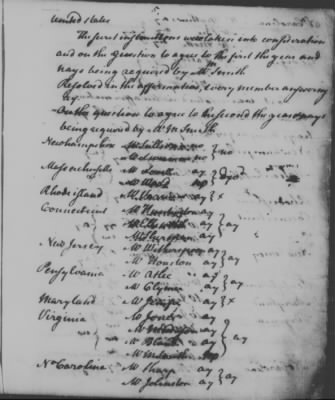 United states
The secret instructions were taken into consideration
and on the question to agree to the first the yeas and
nays being required by Mr Smith
Resolved in the affirmative, every member answering
ay
On the question to agree to the second the yeas & nays
being required by Mr M. Smith
Newhampshire Mr Sullivan no } no
Mr Livermore no
Massachusetts Mr Lovell ay
Mr Ward
Rhodeisland Mr Varnum ay } x
Connecticut Mr Huntington ay
Mr Ellsworth ay } ay
Mr Sherman ay
New Jersey Mr Witherspoon ay } ay
Mr Houston ay
Pensylvania Mr Atlee ay } ay
Mr Clymer ay
Maryland Mr Jenifer ay } x
Virginia Mr Jones ay
Mr Madison ay } ay
Mr Bland ay
Mr M. Smith
No Caroline Mr Sharp ay } ay
Mr Johnston ay